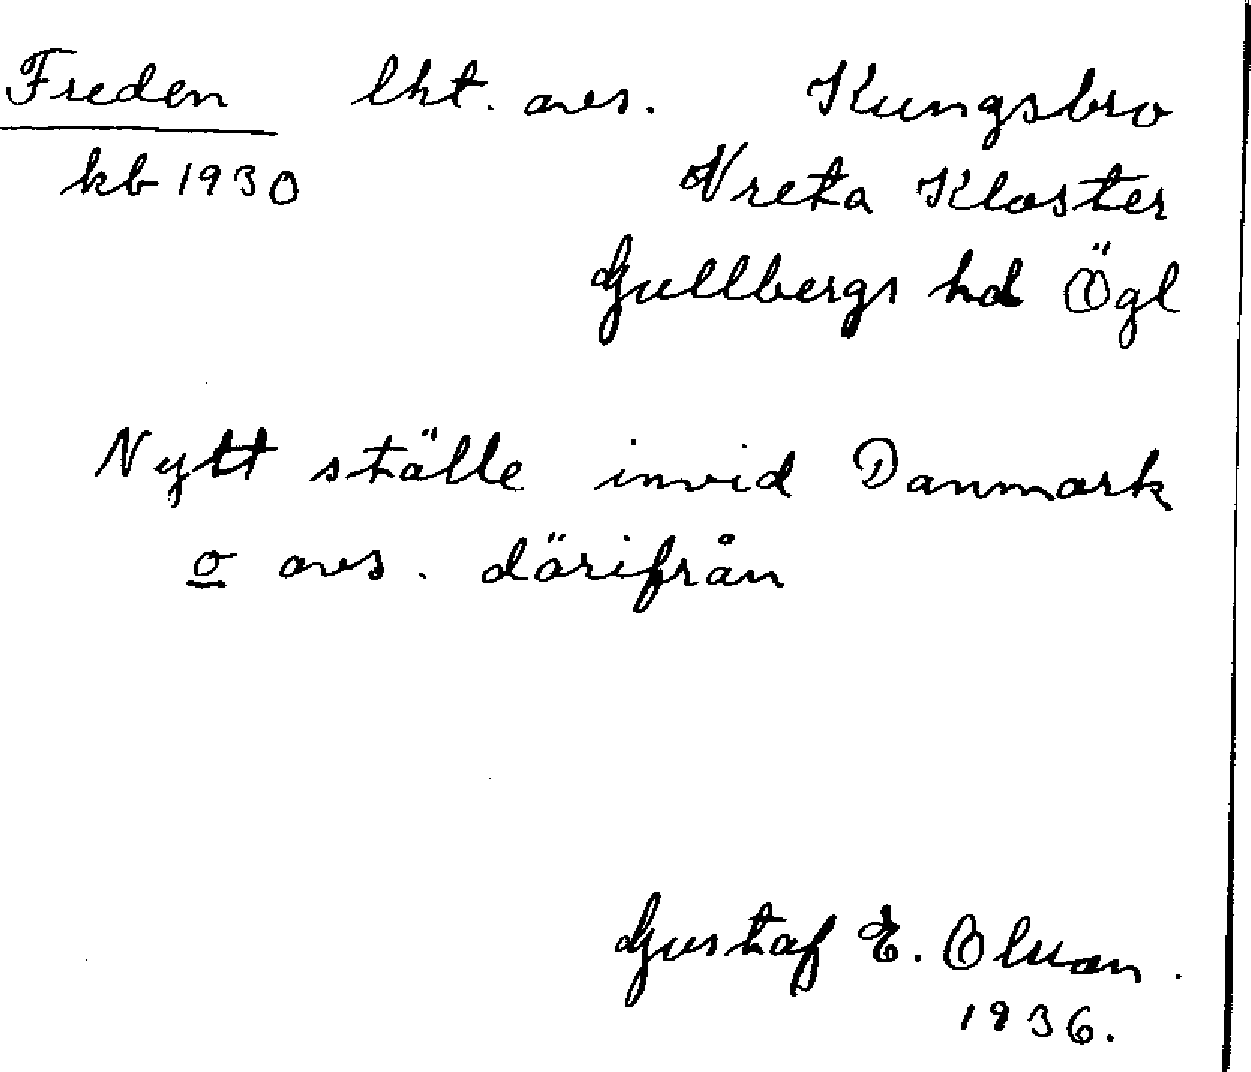 Freden lht. avs. Kungsbro
kb 1930 Vreta Kloster
Gullbergs hd Ögl
Nytt ställe invid Danmark
o avs. därifrån
Gustaf E. Olsson.
1936.